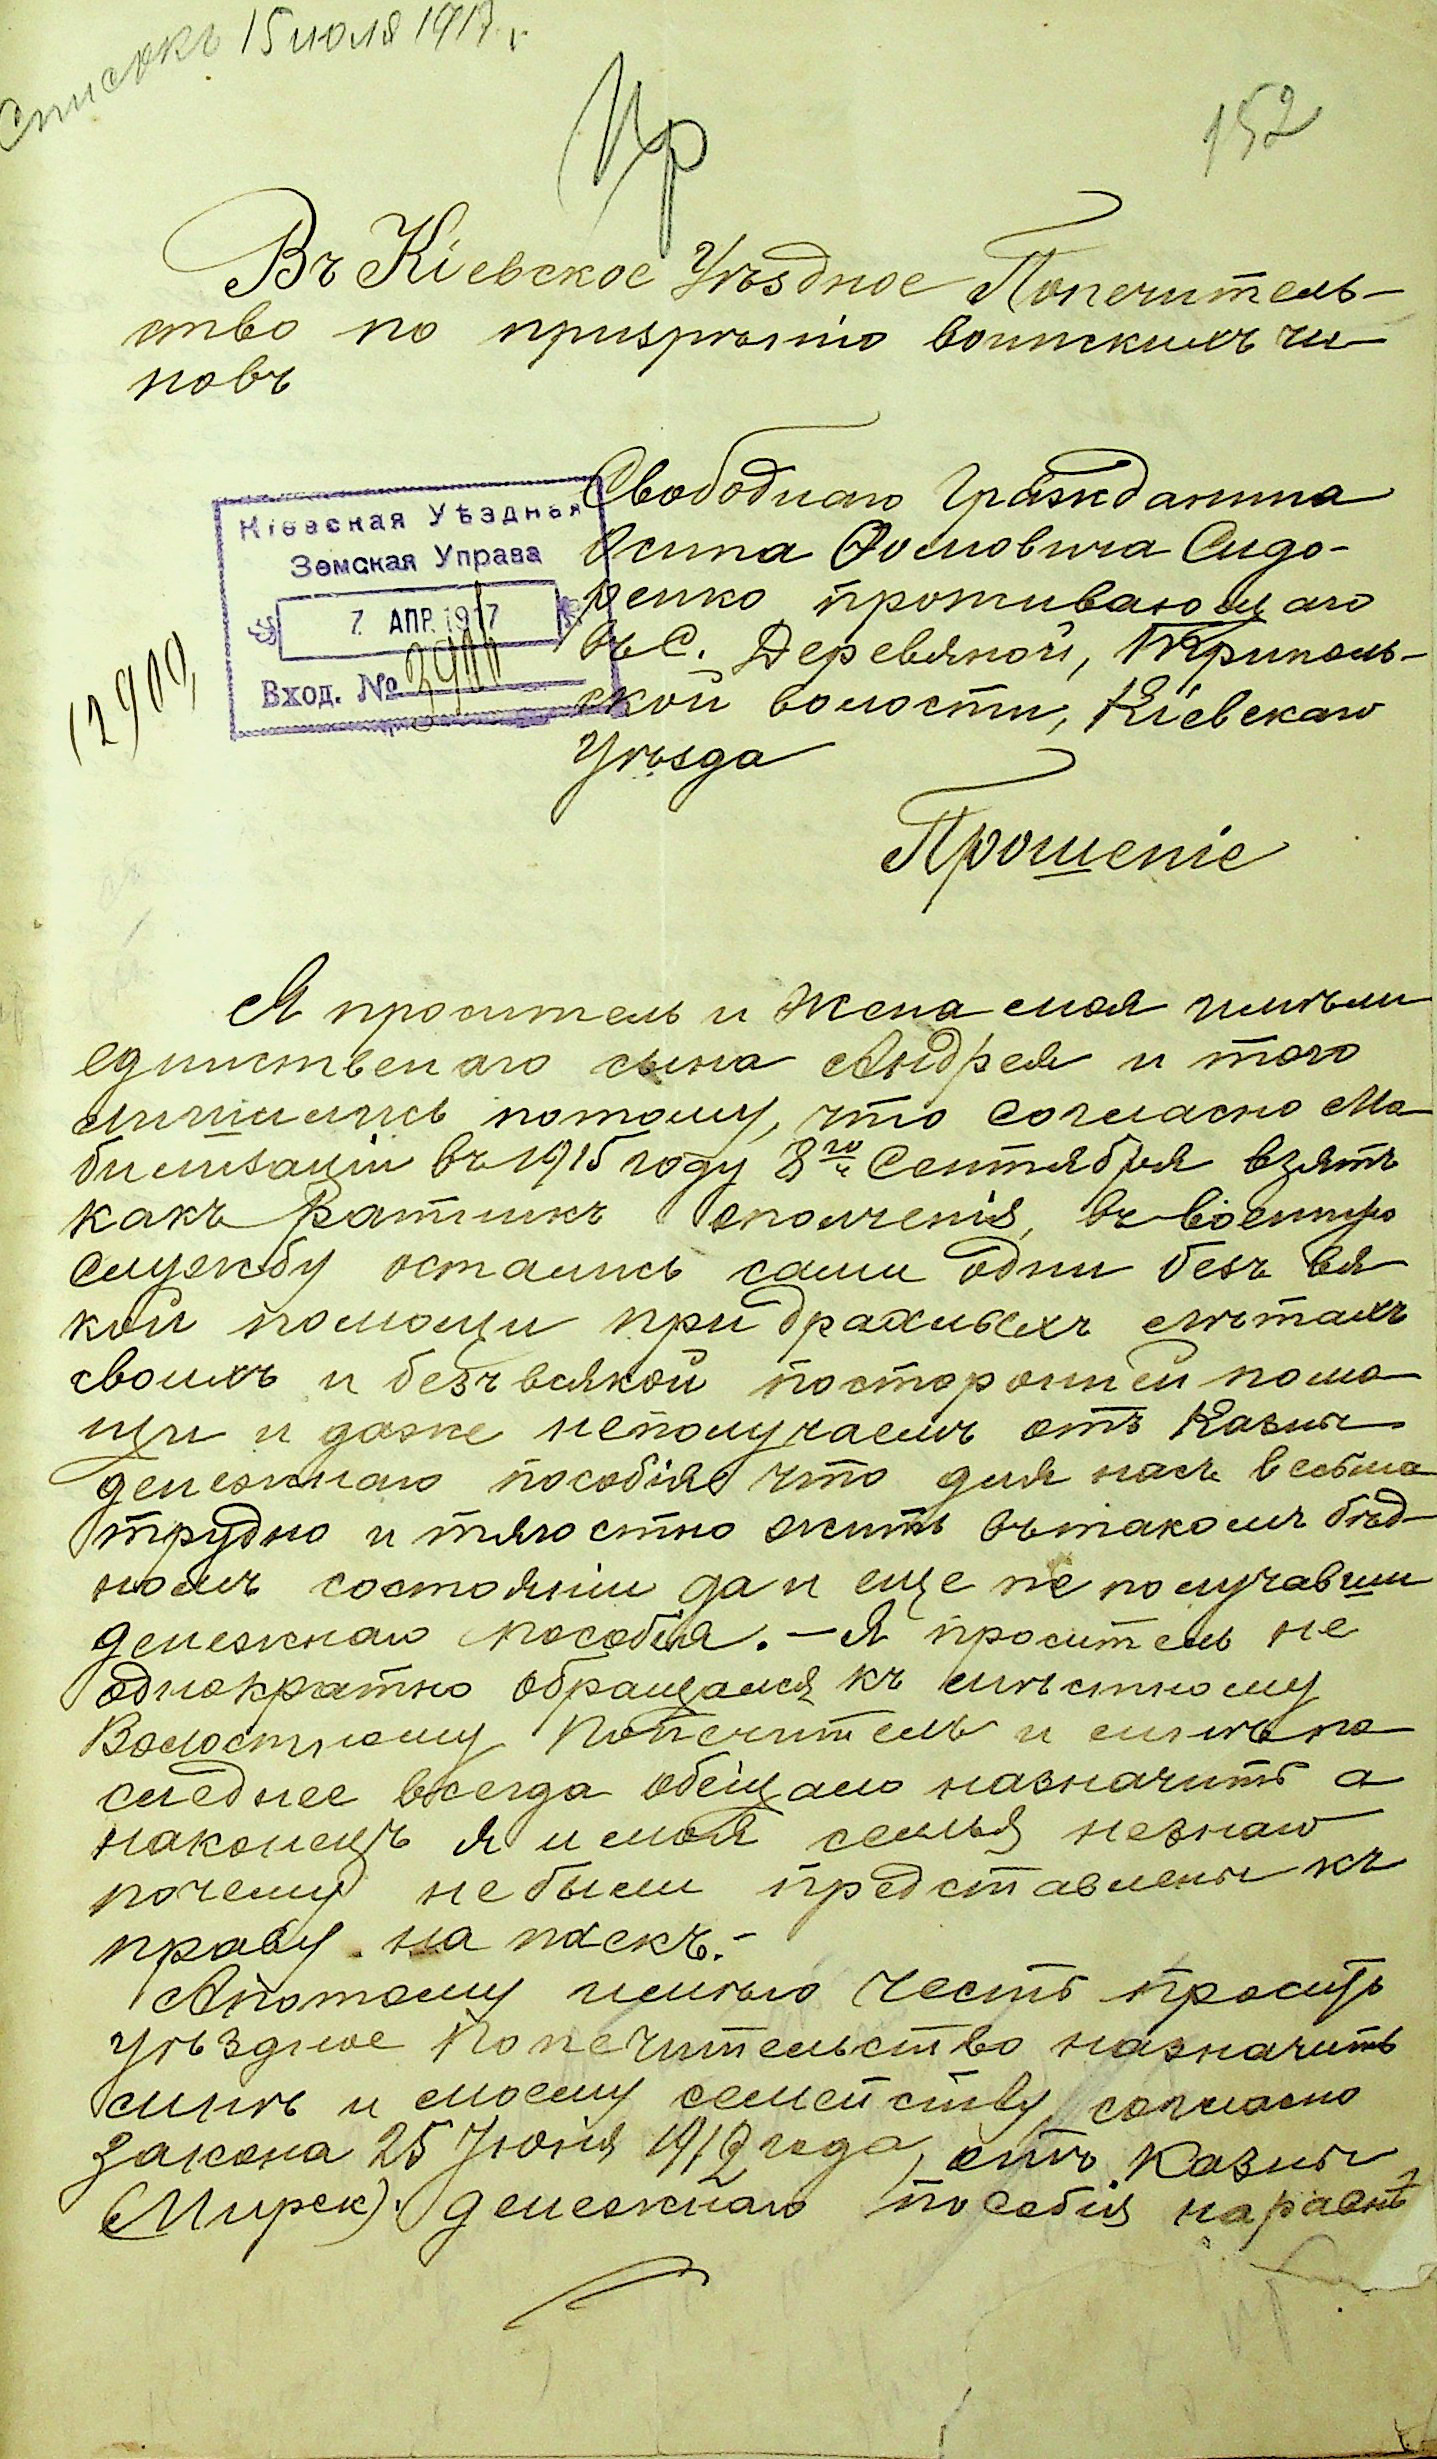 Списокъ 15 июля 1917 г.
Пр
152
Въ Кіевское Уѣздное Попечитель-
ство по призрѣнію воинскихъ чи-
новъ
Кіевская Уѣздная
Земская Управа
7 АПР 1917
Вход. №
12900
Свободнаго Гражданина
Осипа Фомовича Сидо-
ренко проживающаго
въ С. Деревяной, Триполь-
ской волости, Кіевскаго
Уѣзда
Прошеніе
Я проситель и жена моя имѣли
единственаго сына Андрея и того
лишились потому, что согласно Мо-
билизаціи въ 1915 году 8го Сентября взятъ
какъ Ратникъ ополченія, въ военную
службу остались сами одни безъ вся
кой помощи при драхлыхъ лѣтахъ
своихъ и безъ всякой посторонней помо-
щи и даже неполучаемъ отъ Казны
денежнаго пособія что для насъ весьма
трудно и тягостно жить въ такомъ бѣд-
номъ состояніи да и еще не получавши
денежнаго пособія. — Я проситель не
однократно обращался къ мѣстному
Волостному Попечитель и мнѣ по
следнее всегда обещало назначить а
наконецъ я и моя семья незнаю
почему небыли представлены къ
праву на паекъ.-
Апотому имѣю честь просить
уѣздное Попечительство назначить
мнѣ и моему семейству, согласно
закона 25 Іюня 1912 года, отъ Казны
денежнаго пособія наравнѣ